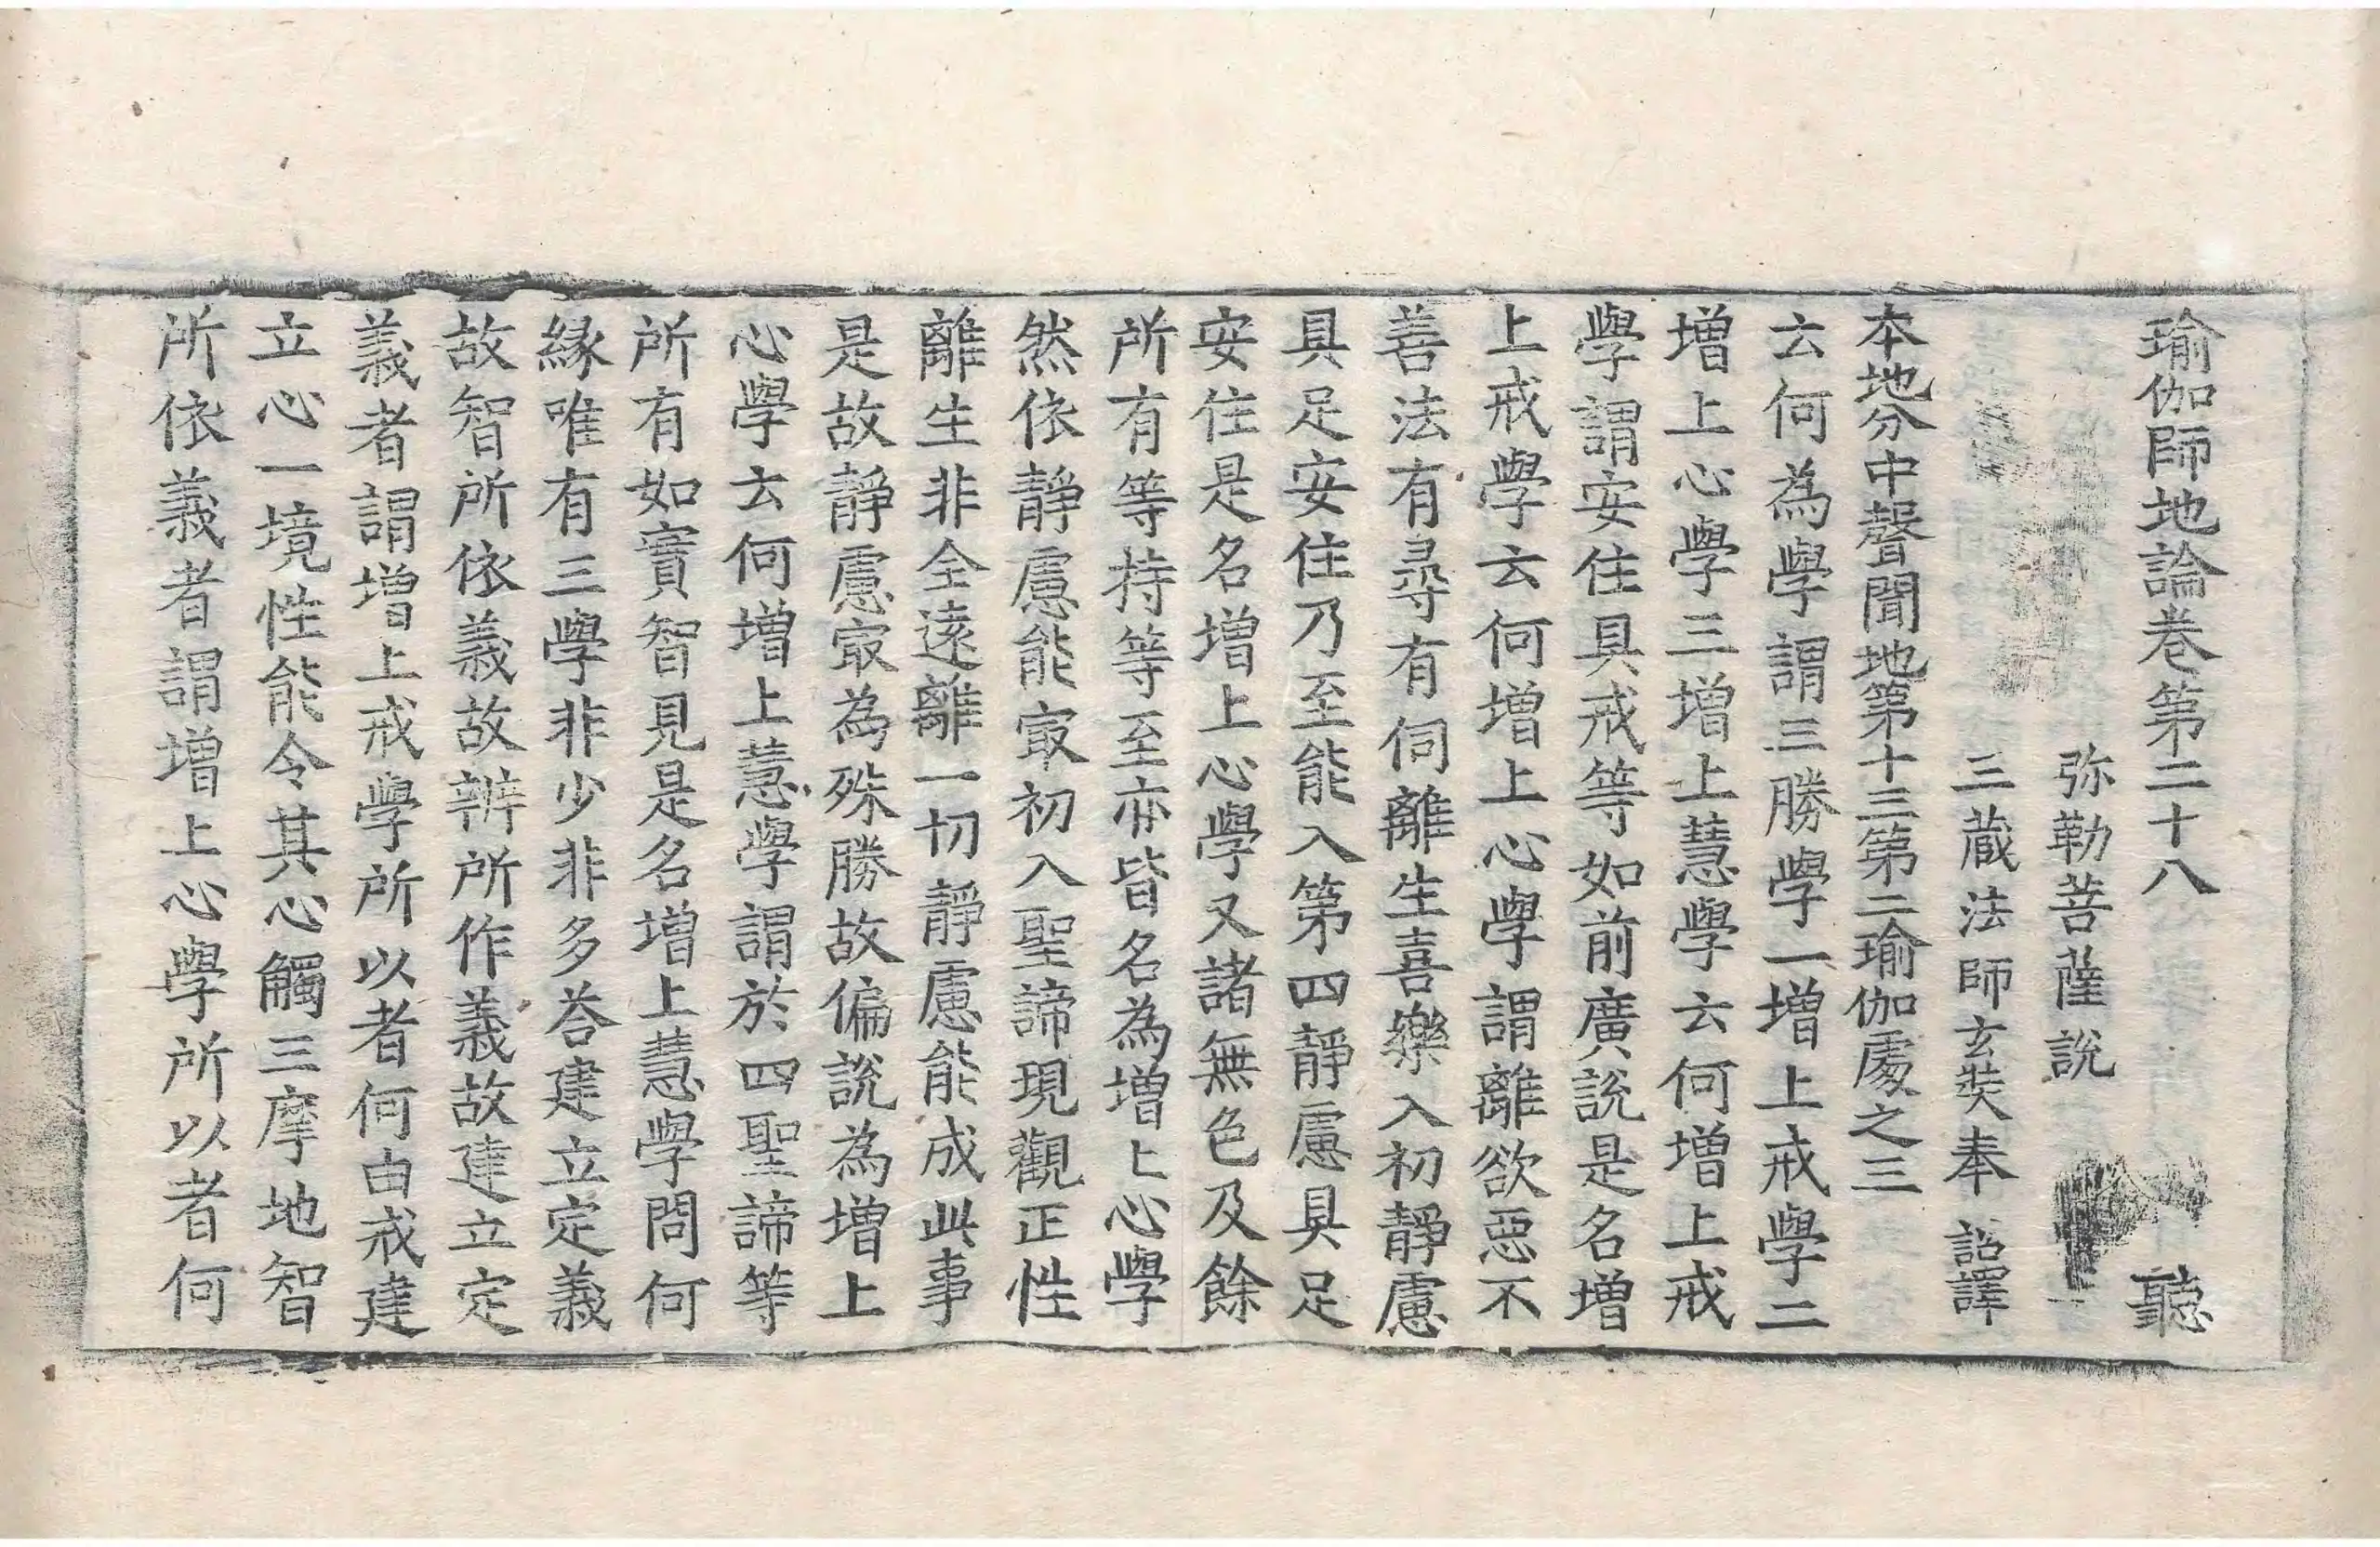 瑜伽師地論卷第二十八 聽
弥勒菩薩說
三藏法師玄奘奉 詔譯
本地分中聲聞地第十三第二瑜伽處之三
云何為學謂三勝學一增上戒學二
增上心學三增上慧學云何增上戒
學謂安住具戒等如前廣說是名增
上戒學云何增上心學謂離欲惡不
善法有尋有伺離生喜樂入初靜慮
具足安住乃至能入第四靜慮具足
安住是名增上心學又諸無色及餘
所有等持等至亦皆名為增上心學
然依靜慮能㝡初入聖諦現觀正性
離生非全遠離一切靜慮能成此事
是故靜慮㝡為殊勝故偏說為增上
心學云何增上慧學謂於四聖諦等
所有如實智見是名增上慧學問何
緣唯有三學非少非多荅建立定義
故智所依義故辨所作義故建立定
義者謂增上戒學所以者何由戒建
立心一境性能令其心觸三摩地智
所依義者謂增上心學所以者何